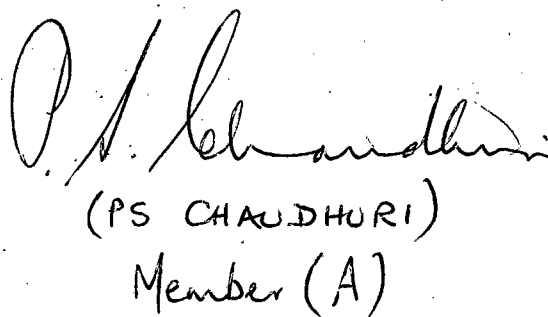 P. S. Chaudhuri
(PS CHAUDHURI)
Member (A)